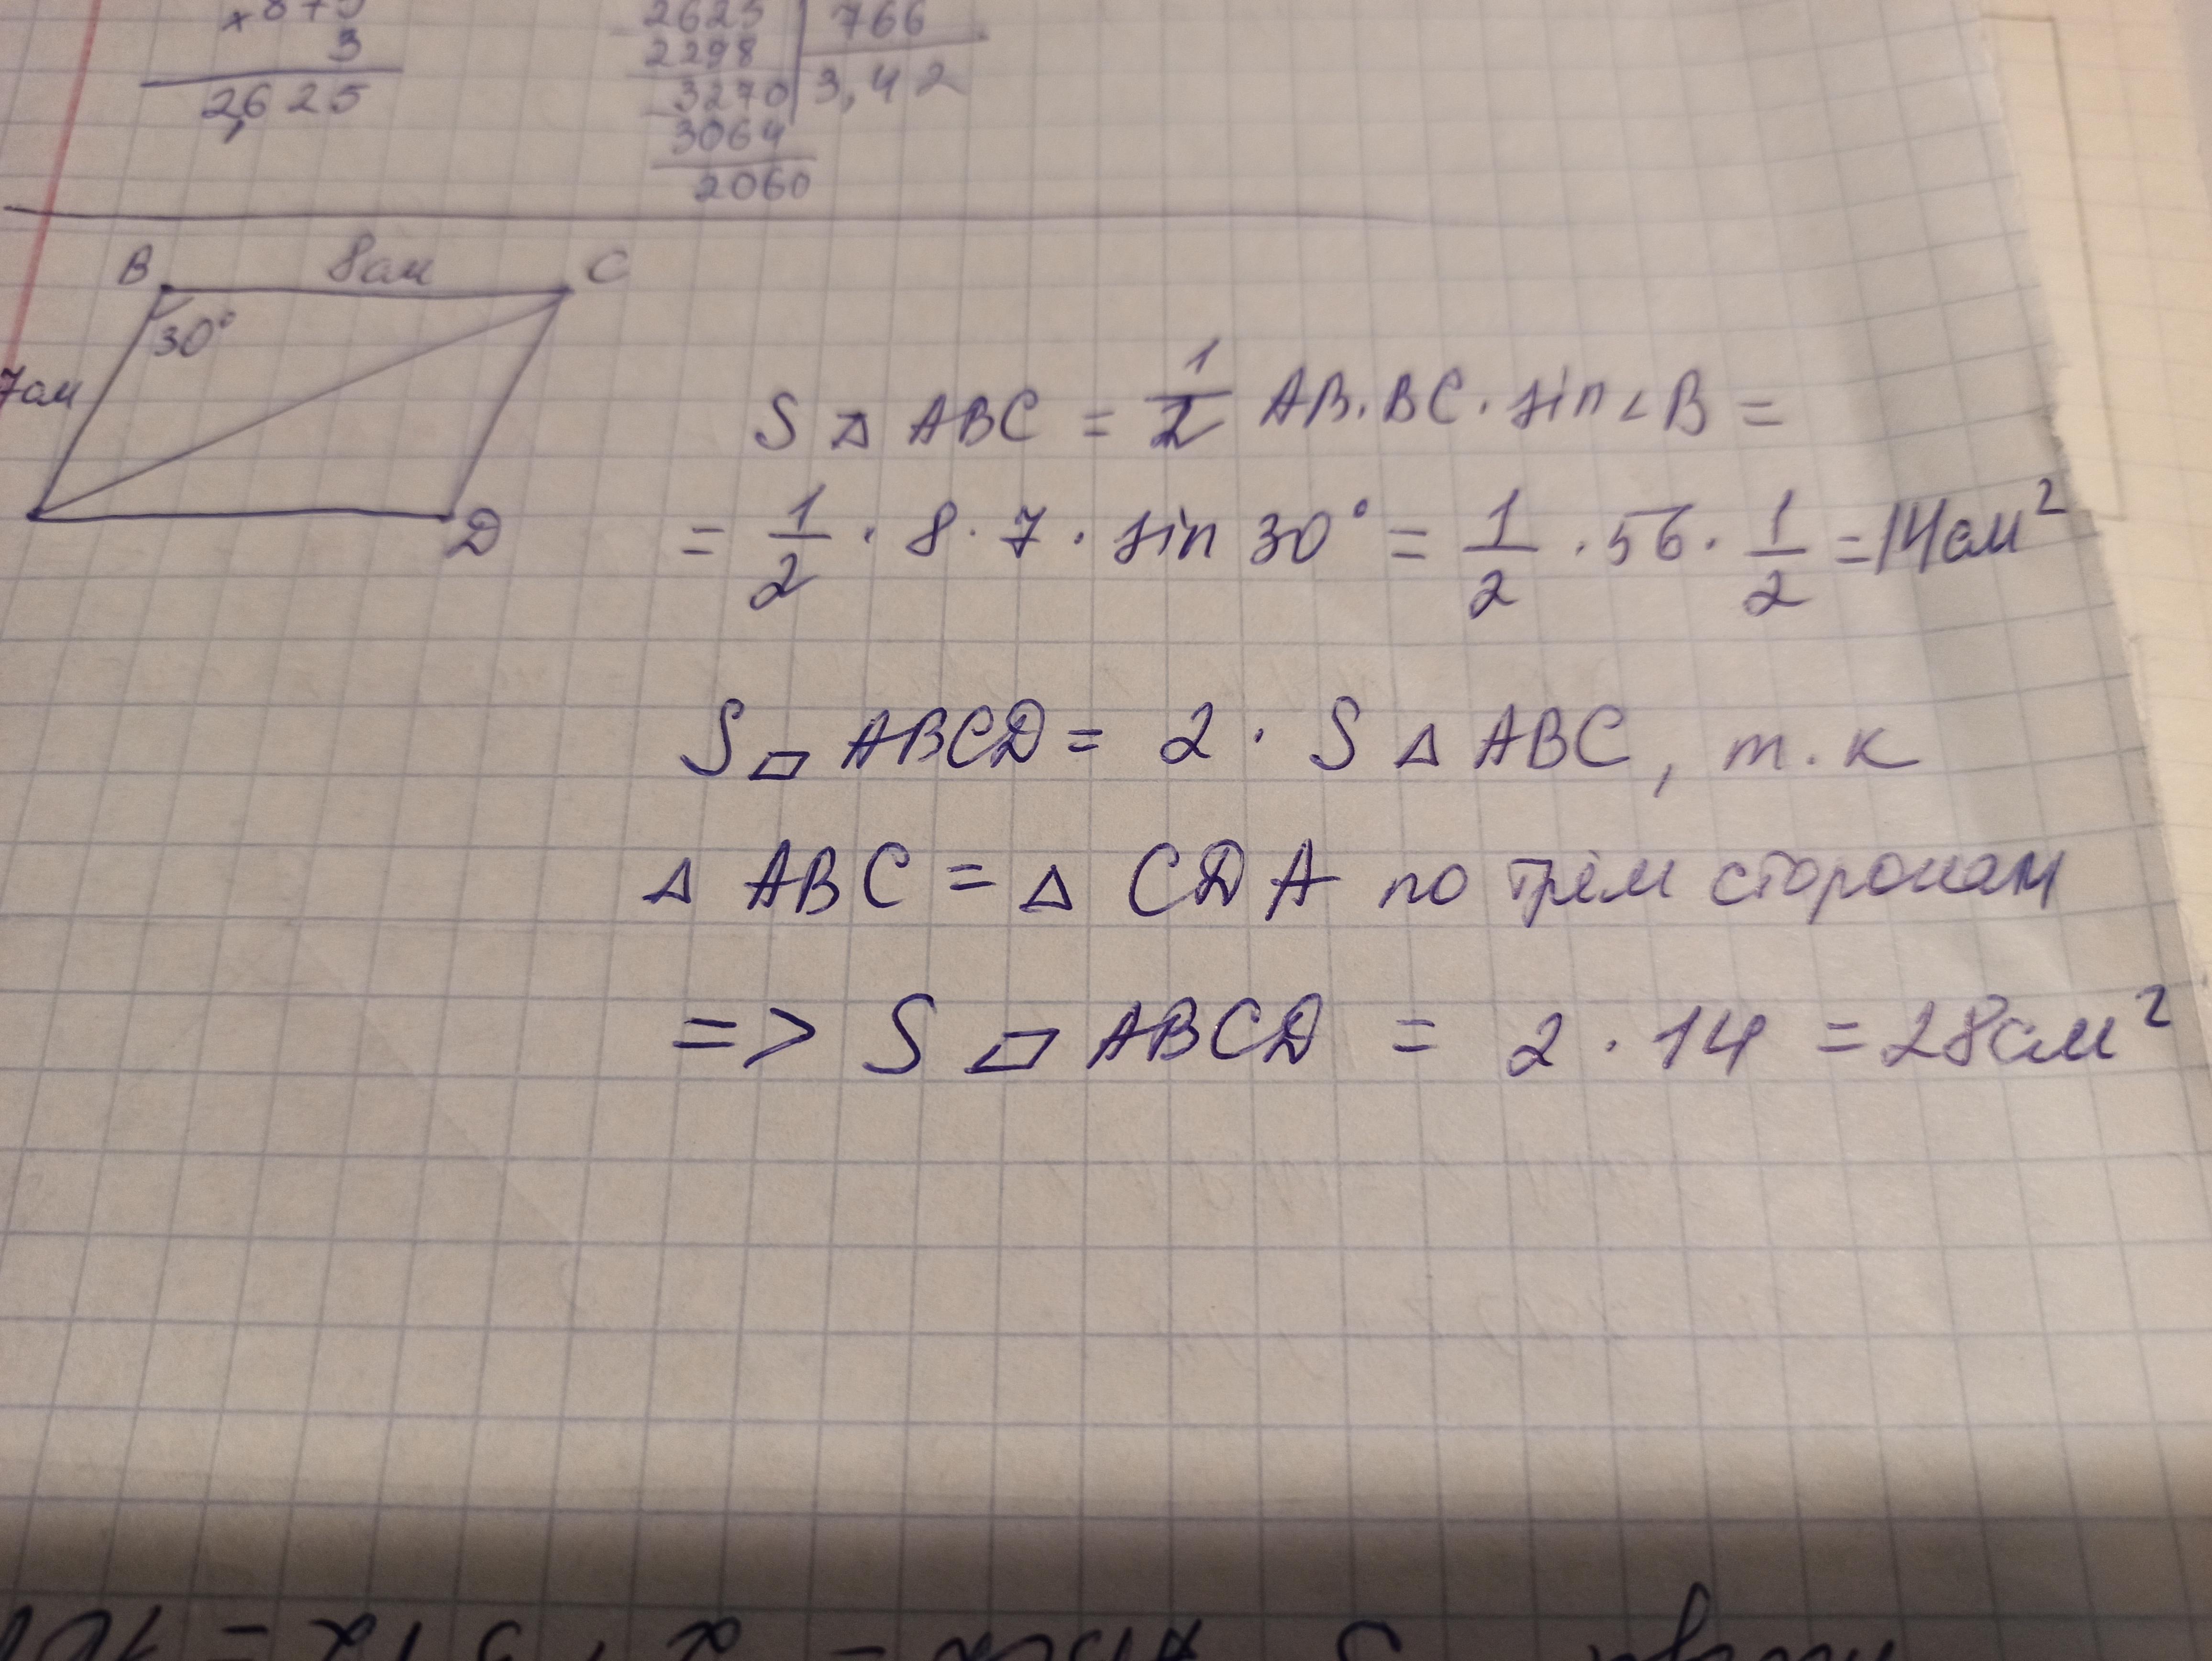 × 875
3
2,625
2625 | 766
2298 | 3,42
3270
3064
2060
B 8см C
30°
7см
D
S △ ABC = 1/2 AB · BC · sin ∠B =
= 1/2 · 8 · 7 · sin 30° = 1/2 · 56 · 1/2 = 14см²
S ▱ ABCD = 2 · S △ ABC, т.к
△ ABC = △ CDA по трём сторонам
=> S ▱ ABCD = 2 · 14 = 28см²